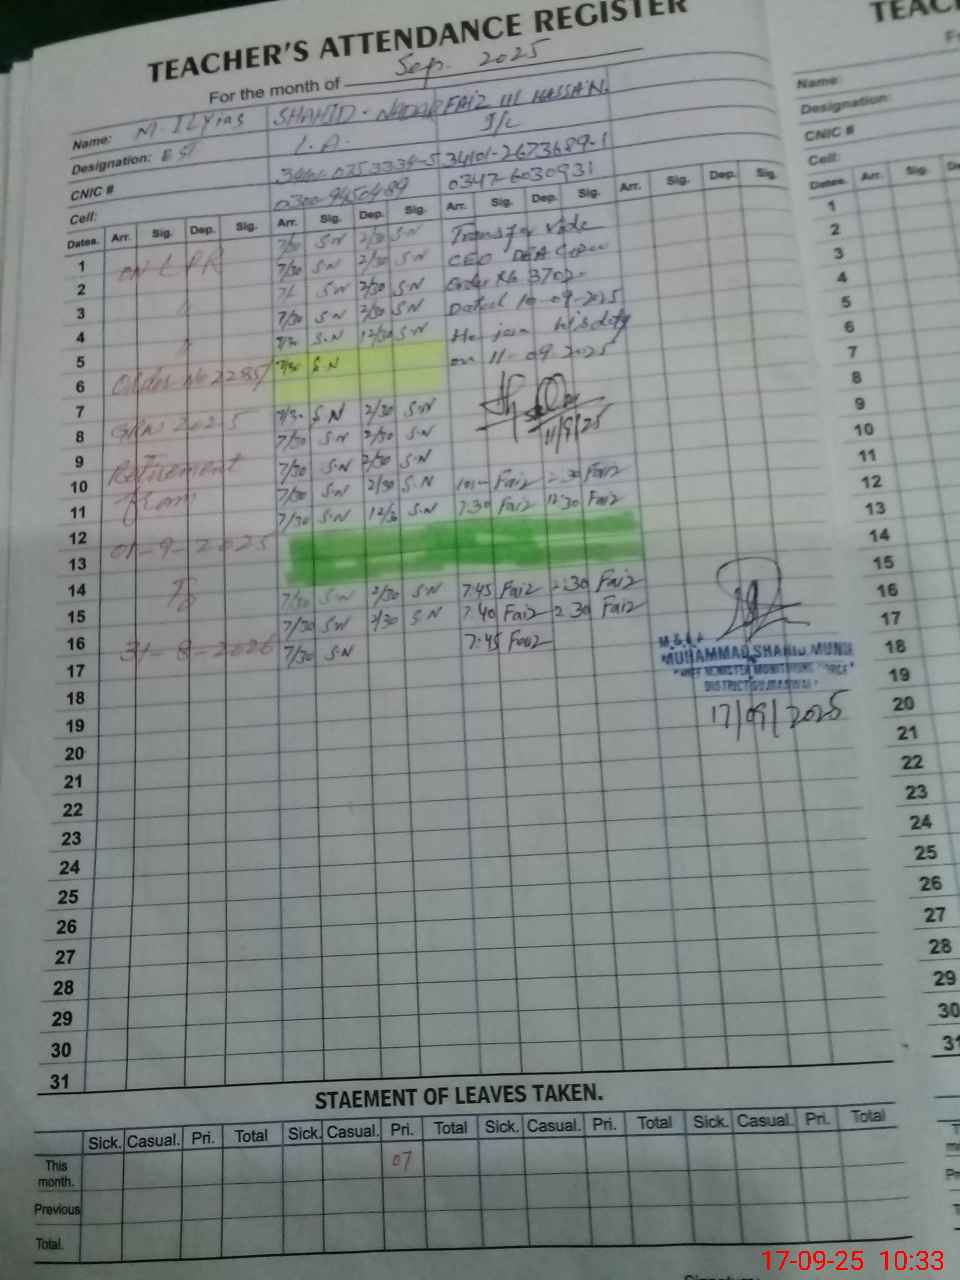 TEACHER'S ATTENDANCE REGISTER
For the month of Sep. 2025
Name: M. ILyias SHAHID - FAIZ Ul HASSAN.
Designation: EST L.A. I/C
CNIC # 34101-2673689-1
Cell: 0300-9450489 0347-6030931
Dates. Arr. Sig. Dep. Sig. Arr. Sig. Dep. Sig. Arr. Sig. Dep. Sig. Arr. Sig. Dep. Sig.
7/30 S.N 2/30 S.N Transfer vide
1 on LPR 7/30 S.N 2/30 S.N CEO DEA
2 S.N 2/30 S.N Order No 3702-
3 7/30 S.N 2/30 S.N Dated 10-09-2025
4 7/30 S.N 12/30 S.N He join his duty
5 7/30 S.N on 11-09-2025
6 Order No 2285/
7 7/30 S.N 2/30 S.N
8 2025 7/30 S.N 2/30 S.N 11/9/25
9 7/30 S.N 2/30 S.N
10 Retirement 7/30 S.N 2/30 S.N Faiz 2:30 Faiz
11 from 7/30 S.N 12/30 S.N 7:30 Faiz 12:30 Faiz
12
13 01-9-2025
14 To 7/30 S.N 2/30 S.N 7:45 Faiz 2:30 Faiz
15 7/30 S.N 2/30 S.N 7:40 Faiz 2:30 Faiz
16 31-8-2026 7/30 S.N 7:45 Faiz
17
18
19
20
21
22
23
24
25
26
27
28
29
30
31
MUHAMMAD SHAHID MUNIR
CHIEF MINISTER MONITORING FORCE
DISTRICT GUJRANWALA
17/09/2025
STAEMENT OF LEAVES TAKEN.
Sick. Casual. Pri. Total Sick. Casual. Pri. Total Sick. Casual. Pri. Total Sick. Casual. Pri. Total
This month. 07
Previous
Total.
TEAC
Name:
Designation:
CNIC #
Cell:
Dates. Arr. Sig.
1
2
3
4
5
6
7
8
9
10
11
12
13
14
15
16
17
18
19
20
21
22
23
24
25
26
27
28
29
30
31
17-09-25 10:33